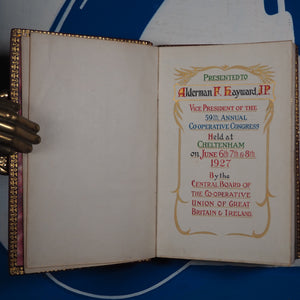 PRESENTED TO
Alderman F. Hayward, J.P.
VICE PRESIDENT OF THE
59th ANNUAL
CO-OPERATIVE CONGRESS
Held at
CHELTENHAM
on JUNE 6th 7th & 8th
1927
By the
CENTRAL BOARD OF
THE CO-OPERATIVE
UNION OF GREAT
BRITAIN & IRELAND.